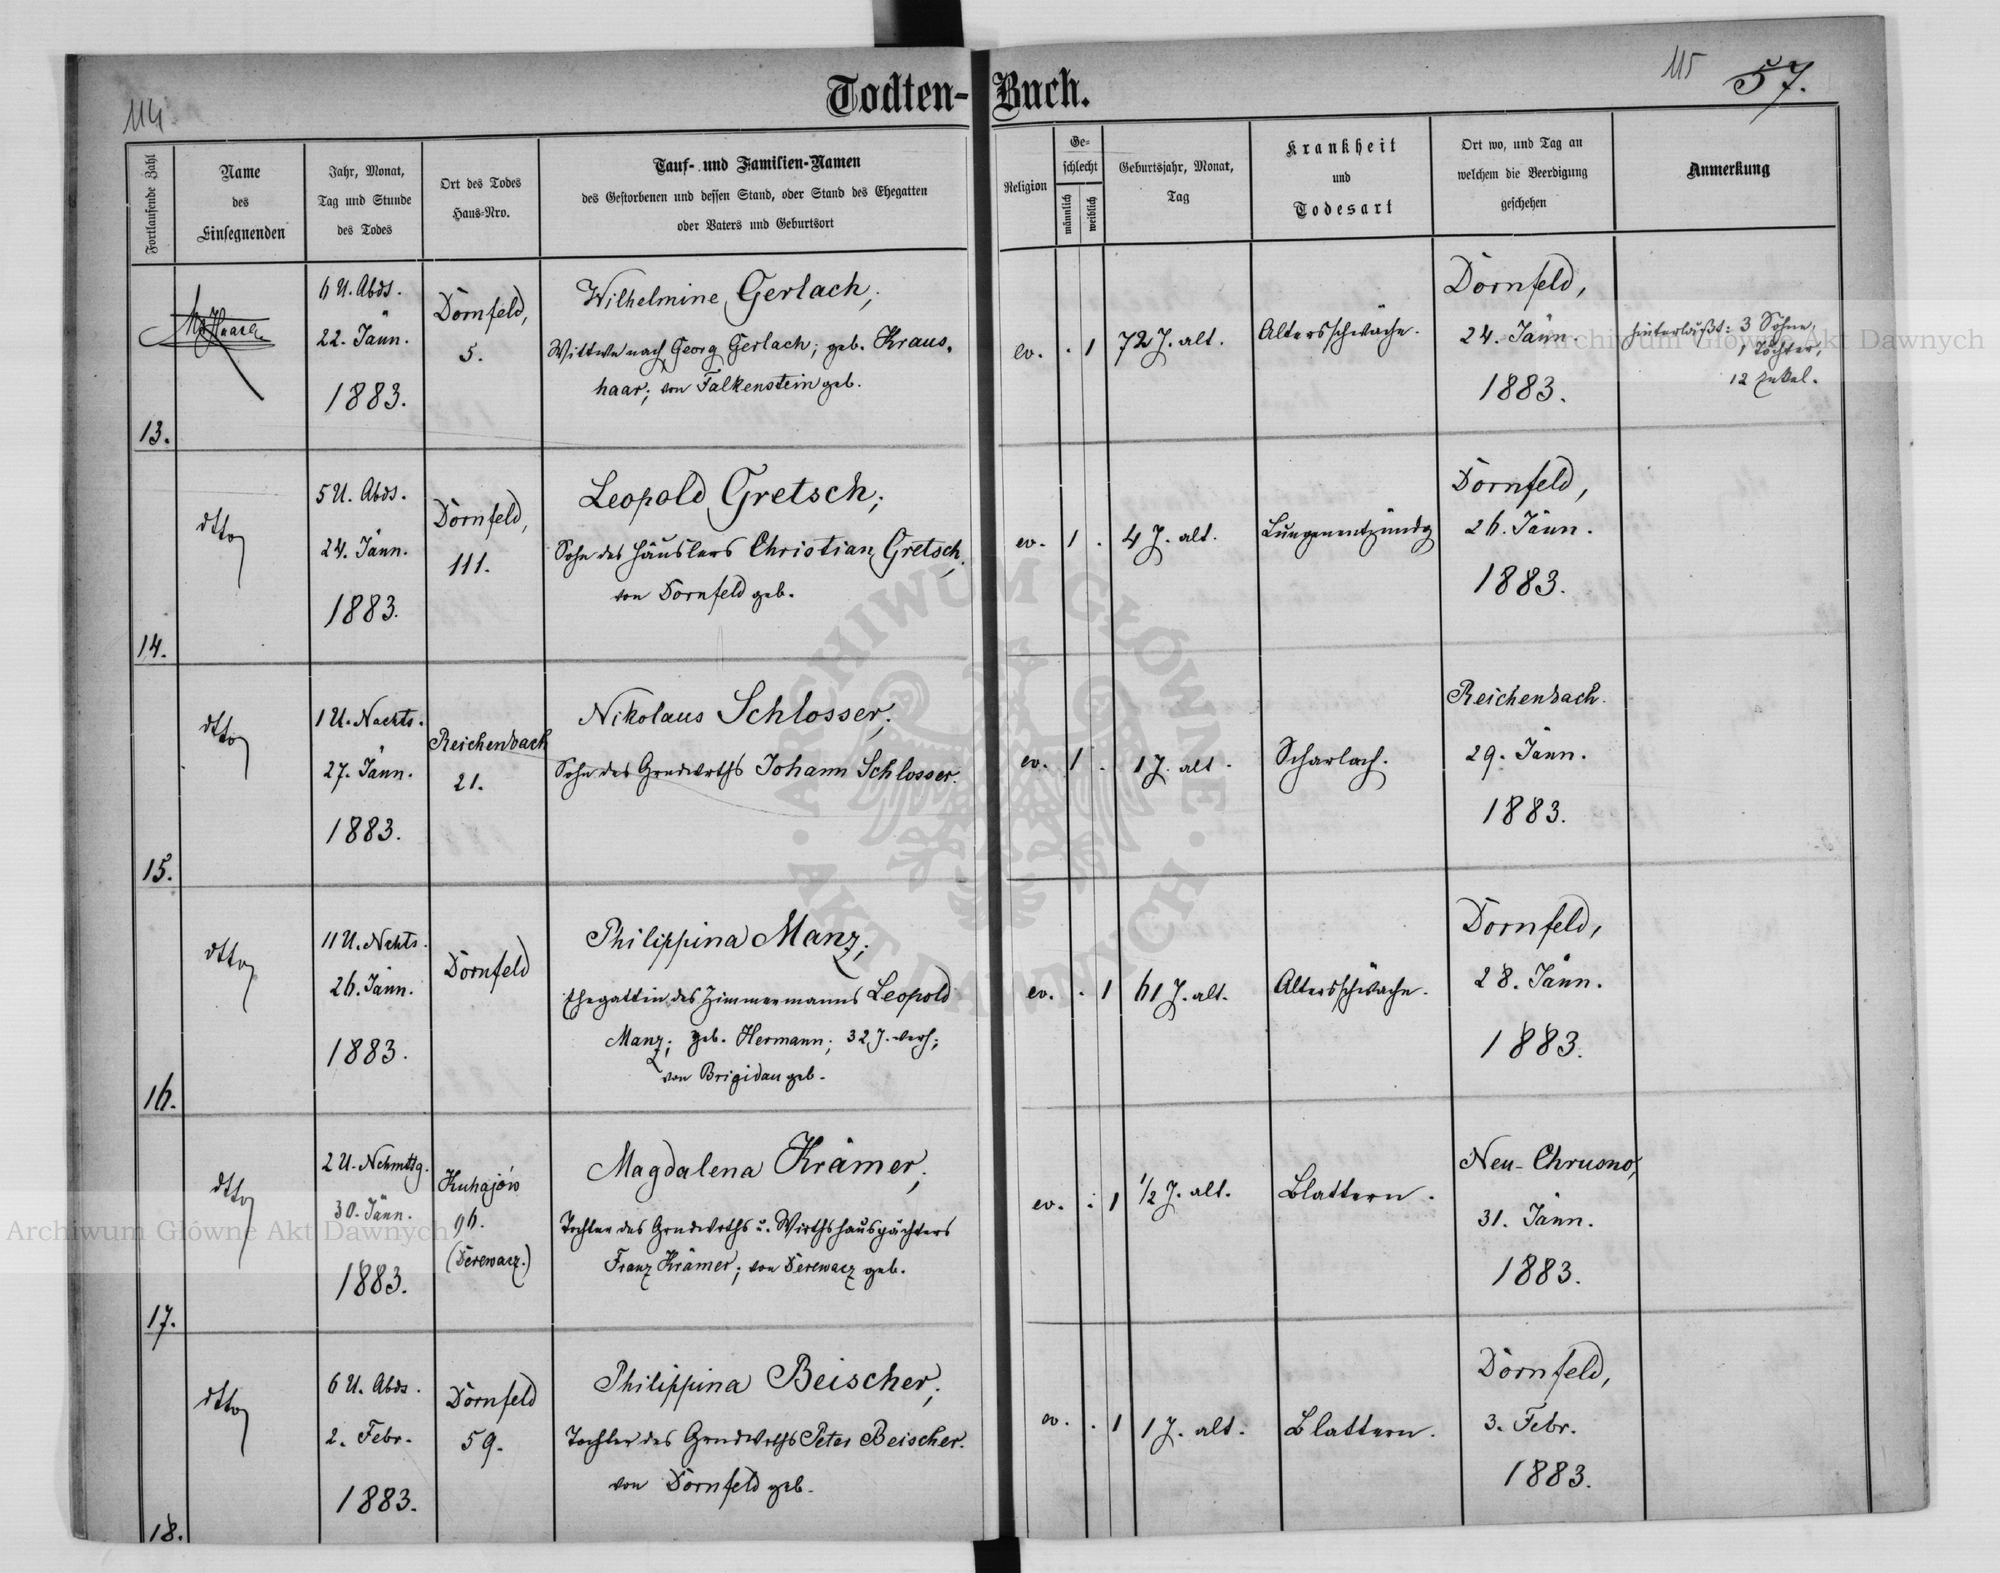 Todten-Buch.
114
115
57.
Fortlaufende Zahl
Name
des
Einsegnenden
Jahr, Monat,
Tag und Stunde
des Todes
Ort des Todes
Haus-Nro.
Tauf- und Familien-Namen
des Gestorbenen und dessen Stand, oder Stand des Ehegatten
oder Vaters und Geburtsort
Religion
Ge-
schlecht
männlich
weiblich
Geburtsjahr, Monat,
Tag
Krankheit
und
Todesart
Ort wo, und Tag an
welchem die Beerdigung
geschehen
Anmerkung
13.
6 U. Abds.
22. Jänn.
1883.
Dornfeld,
5.
Wilhelmine Gerlach,
Wittwe nach Georg Gerlach; geb. Kraus-
haar; von Falkenstein geb.
ev. . 1
72 J. alt.
Altersschwäche.
Dornfeld,
24. Jänn.
1883.
hinterläßt: 3 Söhne,
1 Tochter,
12 Enkel.
14.
dtto
5 U. Abds.
24. Jänn.
1883.
Dornfeld,
111.
Leopold Gretsch;
Sohn des Häuslers Christian Gretsch,
von Dornfeld geb.
ev. 1 .
4 J. alt.
Lungenentzündg
Dornfeld,
26. Jänn.
1883.
15.
dtto
1 U. Nachts.
27. Jänn.
1883.
Reichenbach
21.
Nikolaus Schlosser,
Sohn des Grndwrths Johann Schlosser.
ev. 1 .
1 J. alt.
Scharlach.
Reichenbach.
29. Jänn.
1883.
16.
dtto
11 U. Nchts.
26. Jänn.
1883.
Dornfeld
Philippina Manz;
Ehegattin des Zimmermanns Leopold
Manz; geb. Hermann; 32 J. verh;
von Brigidau geb.
ev. . 1
61 J. alt.
Altersschwäche.
Dornfeld,
28. Jänn.
1883.
17.
dtto
2 U. Nchmttg.
30. Jänn.
1883.
Kuhajów
96.
(Derewacz.)
Magdalena Krämer,
Tochter des Grndwrths u. Wirthshauspächters
Franz Krämer; von Derewacz geb.
ev. . 1
1/2 J. alt.
Blattern.
Neu-Chrusno,
31. Jänn.
1883.
18.
dtto
6 U. Abds.
2. Febr.
1883.
Dornfeld
59.
Philippina Beischer,
Tochter des Grndwrths Peter Beischer.
von Dornfeld geb.
ev. . 1
1 J. alt.
Blattern.
Dornfeld,
3. Febr.
1883.
Archiwum Główne Akt Dawnych
Archiwum Główne Akt Dawnych
ARCHIWUM GŁÓWNE · AKT DAWNYCH ·